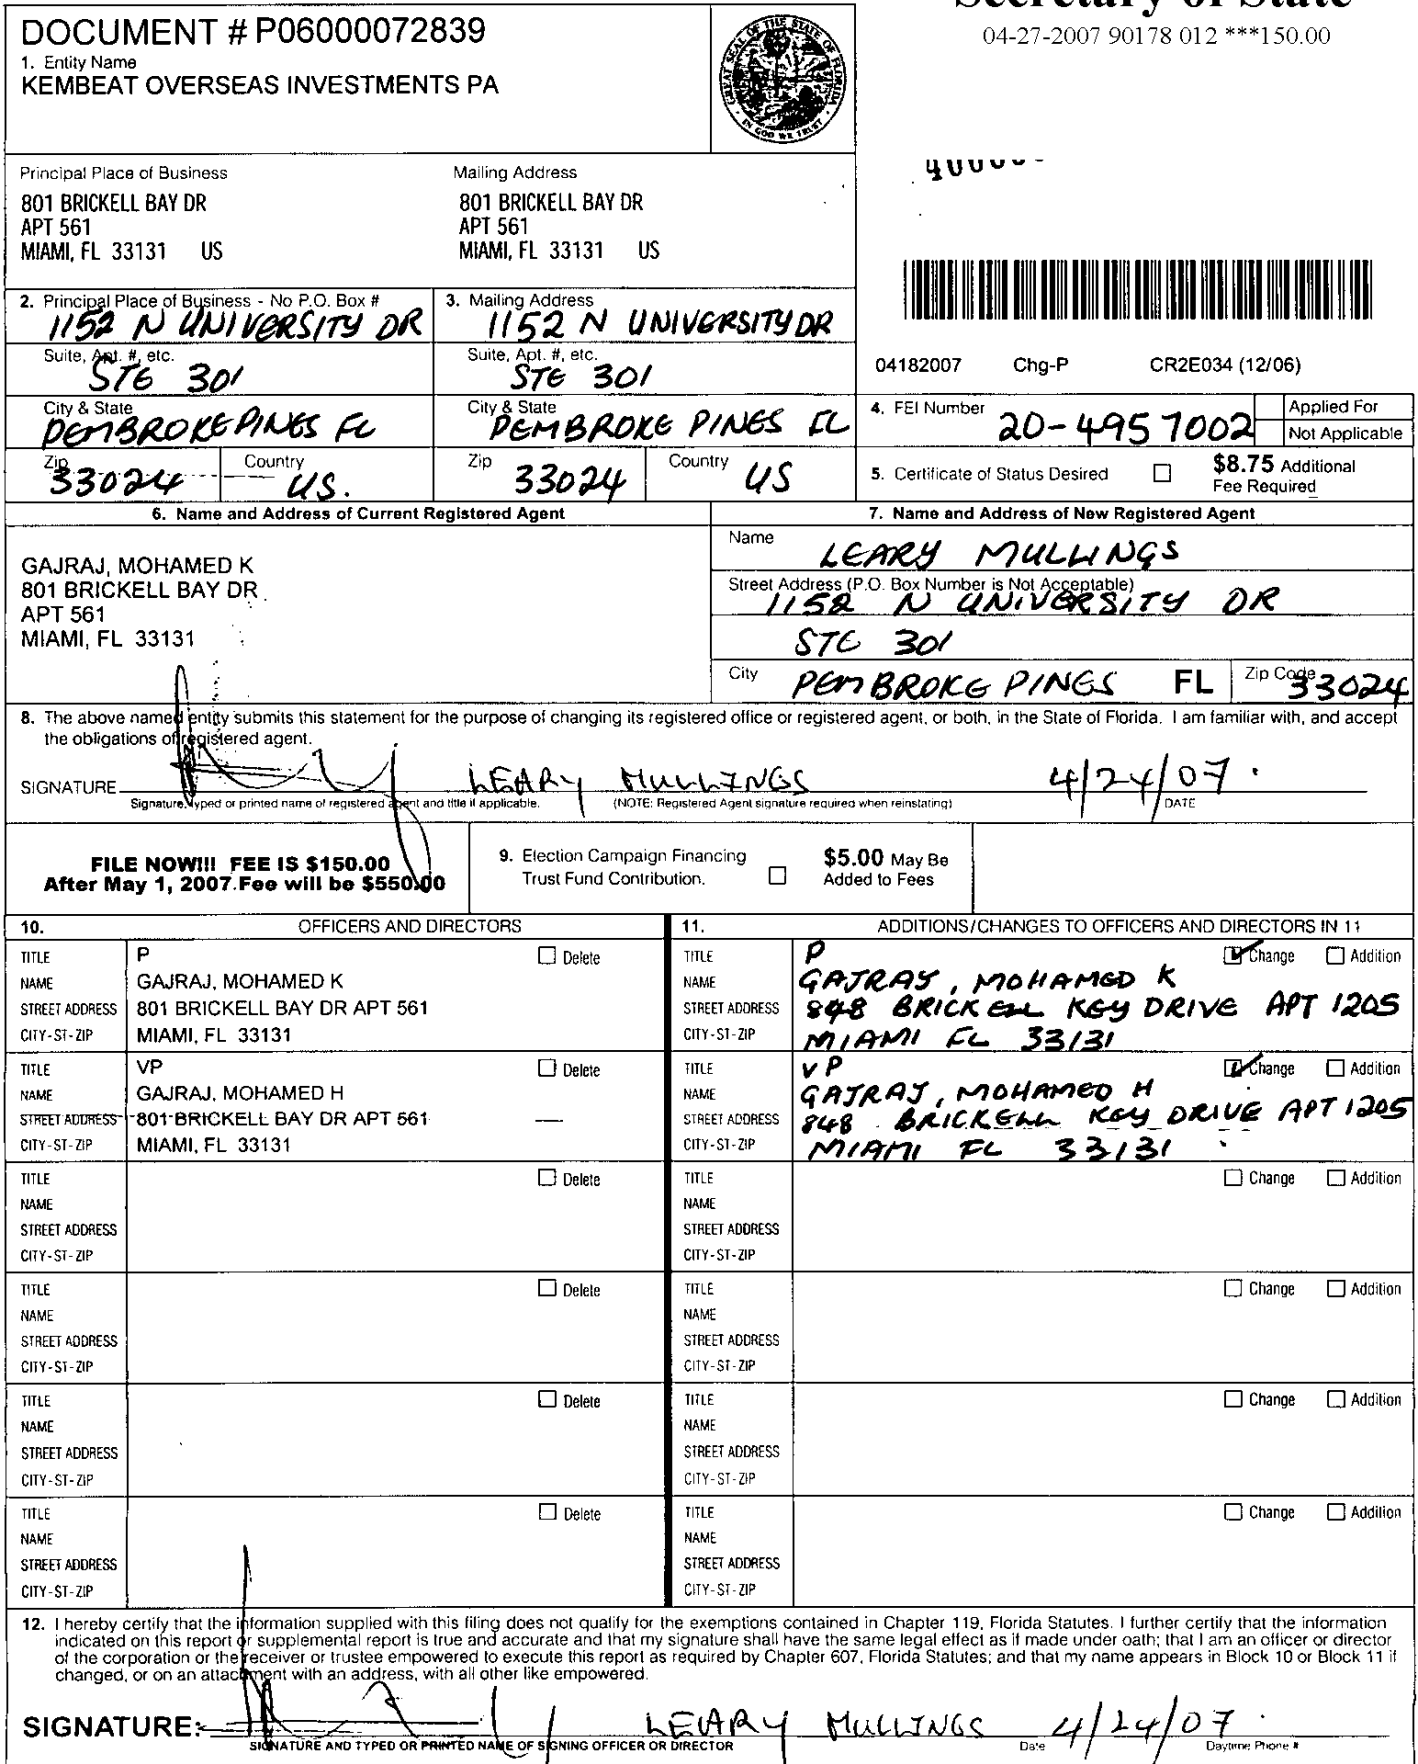 Secretary of State
04-27-2007 90178 012 ***150.00
DOCUMENT # P06000072839
1. Entity Name
KEMBEAT OVERSEAS INVESTMENTS PA
GREAT SEAL OF THE STATE OF FLORIDA
IN GOD WE TRUST
Principal Place of Business
801 BRICKELL BAY DR
APT 561
MIAMI, FL 33131 US
Mailing Address
801 BRICKELL BAY DR
APT 561
MIAMI, FL 33131 US
2. Principal Place of Business - No P.O. Box #
1152 N UNIVERSITY DR
3. Mailing Address
1152 N UNIVERSITY DR
Suite, Apt. #, etc.
STE 301
Suite, Apt. #, etc.
STE 301
04182007 Chg-P CR2E034 (12/06)
City & State
PEMBROKE PINES FL
City & State
PEMBROKE PINES FL
4. FEI Number
20-4957002
Applied For
Not Applicable
Zip
33024
Country
US.
Zip
33024
Country
US
5. Certificate of Status Desired
$8.75 Additional
Fee Required
6. Name and Address of Current Registered Agent
GAJRAJ, MOHAMED K
801 BRICKELL BAY DR
APT 561
MIAMI, FL 33131
7. Name and Address of New Registered Agent
Name
LEARY MULLINGS
Street Address (P.O. Box Number is Not Acceptable)
1152 N UNIVERSITY DR
STE 301
City
PEMBROKE PINES FL
Zip Code
33024
8. The above named entity submits this statement for the purpose of changing its registered office or registered agent, or both, in the State of Florida. I am familiar with, and accept
the obligations of registered agent.
SIGNATURE LEARY MULLINGS 4/24/07
Signature, typed or printed name of registered agent and title if applicable. (NOTE: Registered Agent signature required when reinstating) DATE
FILE NOW!!! FEE IS $150.00
After May 1, 2007 Fee will be $550.00
9. Election Campaign Financing
Trust Fund Contribution.
$5.00 May Be
Added to Fees
10. OFFICERS AND DIRECTORS
TITLE P Delete
NAME GAJRAJ, MOHAMED K
STREET ADDRESS 801 BRICKELL BAY DR APT 561
CITY-ST-ZIP MIAMI, FL 33131
TITLE VP Delete
NAME GAJRAJ, MOHAMED H
STREET ADDRESS 801 BRICKELL BAY DR APT 561
CITY-ST-ZIP MIAMI, FL 33131
TITLE Delete
NAME
STREET ADDRESS
CITY-ST-ZIP
TITLE Delete
NAME
STREET ADDRESS
CITY-ST-ZIP
TITLE Delete
NAME
STREET ADDRESS
CITY-ST-ZIP
TITLE Delete
NAME
STREET ADDRESS
CITY-ST-ZIP
11. ADDITIONS/CHANGES TO OFFICERS AND DIRECTORS IN 11
TITLE P Change Addition
NAME GAJRAJ, MOHAMED K
STREET ADDRESS 848 BRICKELL KEY DRIVE APT 1205
CITY-ST-ZIP MIAMI FL 33131
TITLE VP Change Addition
NAME GAJRAJ, MOHAMED H
STREET ADDRESS 848 BRICKELL KEY DRIVE APT 1205
CITY-ST-ZIP MIAMI FL 33131
TITLE Change Addition
NAME
STREET ADDRESS
CITY-ST-ZIP
TITLE Change Addition
NAME
STREET ADDRESS
CITY-ST-ZIP
TITLE Change Addition
NAME
STREET ADDRESS
CITY-ST-ZIP
TITLE Change Addition
NAME
STREET ADDRESS
CITY-ST-ZIP
12. I hereby certify that the information supplied with this filing does not qualify for the exemptions contained in Chapter 119, Florida Statutes. I further certify that the information
indicated on this report or supplemental report is true and accurate and that my signature shall have the same legal effect as if made under oath; that I am an officer or director
of the corporation or the receiver or trustee empowered to execute this report as required by Chapter 607, Florida Statutes; and that my name appears in Block 10 or Block 11 if
changed, or on an attachment with an address, with all other like empowered.
SIGNATURE: LEARY MULLINGS 4/24/07
SIGNATURE AND TYPED OR PRINTED NAME OF SIGNING OFFICER OR DIRECTOR Date Daytime Phone #